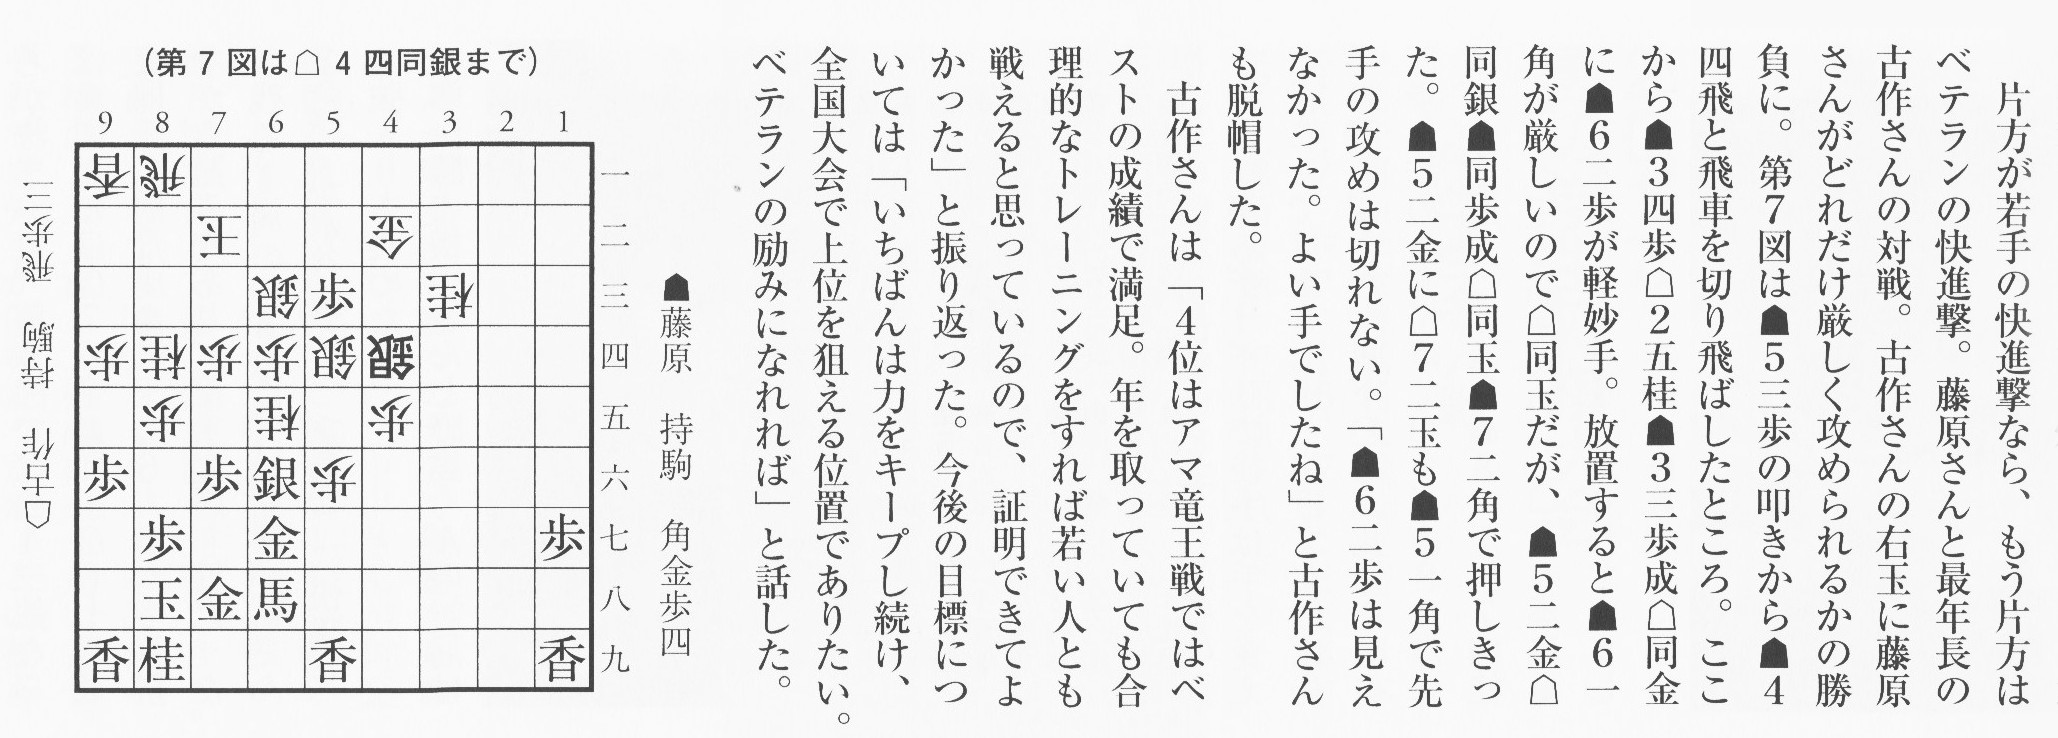 片方が若手の快進撃なら、もう片方は
ベテランの快進撃。藤原さんと最年長の
古作さんの対戦。古作さんの右玉に藤原
さんがどれだけ厳しく攻められるかの勝
負に。第7図は☗5三歩の叩きから☗4
四飛と飛車を切り飛ばしたところ。ここ
から☗3四歩☖2五桂☗3三歩成☖同金
に☗6二歩が軽妙手。放置すると☗6一
角が厳しいので☖同玉だが、☗5二金☖
同銀☗同歩成☖同玉☗7二角で押しきっ
た。☗5二金に☖7二玉も☗5一角で先
手の攻めは切れない。「☗6二歩は見え
なかった。よい手でしたね」と古作さん
も脱帽した。
古作さんは「4位はアマ竜王戦ではベ
ストの成績で満足。年を取っていても合
理的なトレーニングをすれば若い人とも
戦えると思っているので、証明できてよ
かった」と振り返った。今後の目標につ
いては「いちばんは力をキープし続け、
全国大会で上位を狙える位置でありたい。
ベテランの励みになれれば」と話した。
(第7図は☖4四同銀まで)
☗藤原 持駒 角金歩四
9 8 7 6 5 4 3 2 1
香飛 一
玉金 二
銀歩桂 三
歩桂歩歩銀銀 四
歩桂歩 五
歩歩銀歩 六
歩金歩 七
玉金馬 八
香桂香香 九
☖古作 持駒 飛歩三